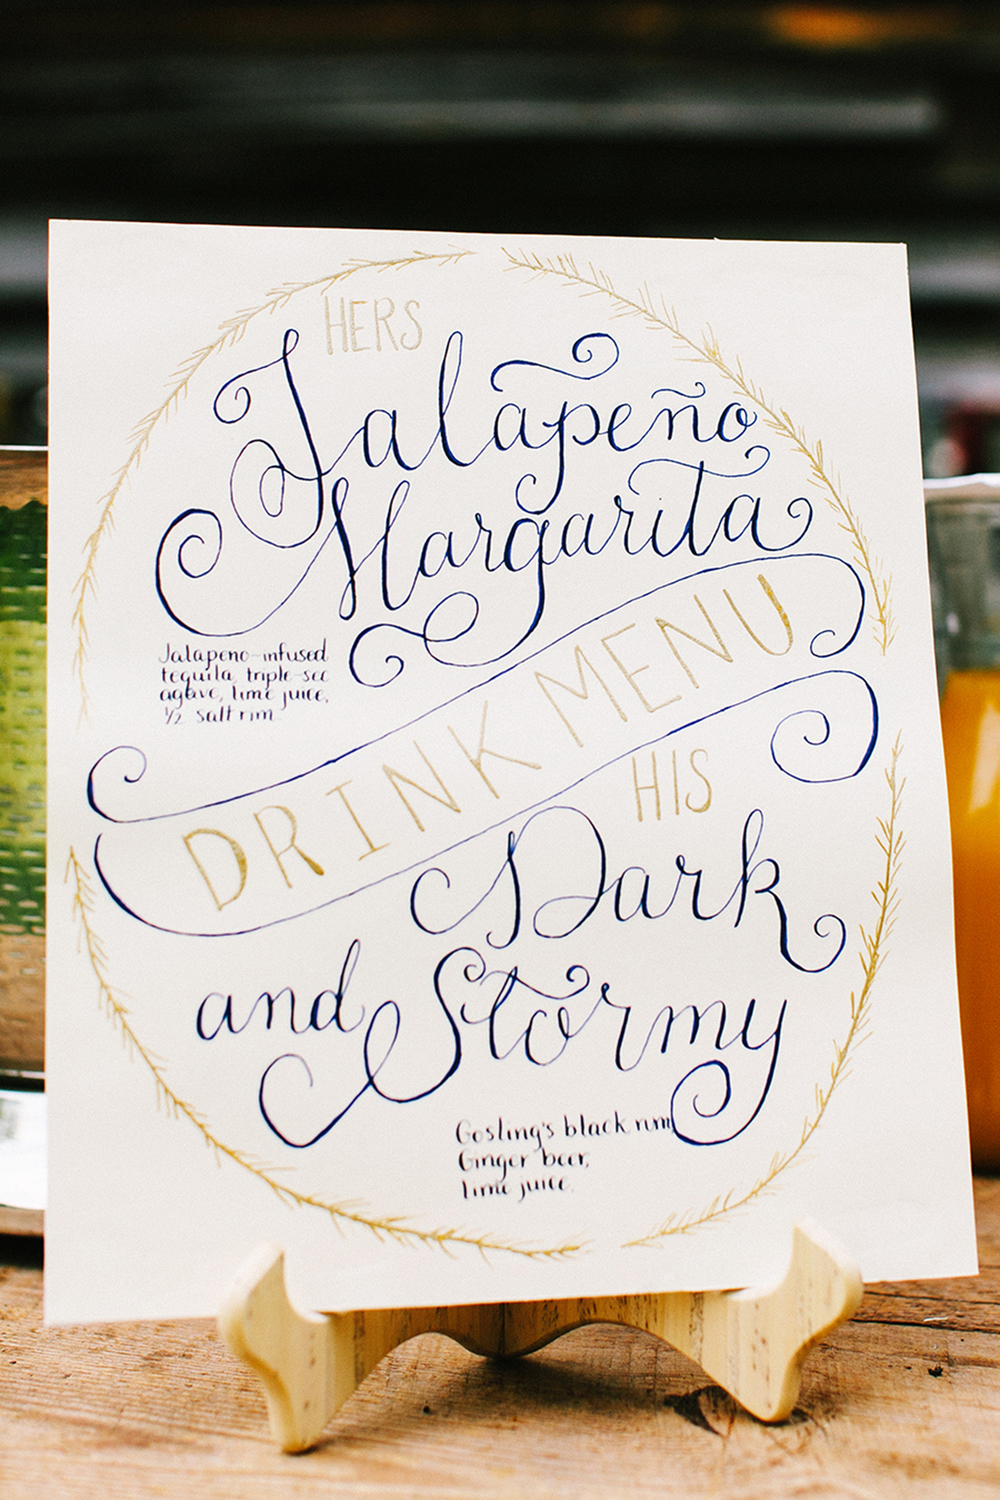 HERS
Jalapeño
Margarita
Jalapeno-infused
tequila, triple-sec
agave, lime juice,
1/2 salt rim
DRINK MENU
HIS
Dark
and Stormy
Gosling's black rum
Ginger beer,
lime juice.